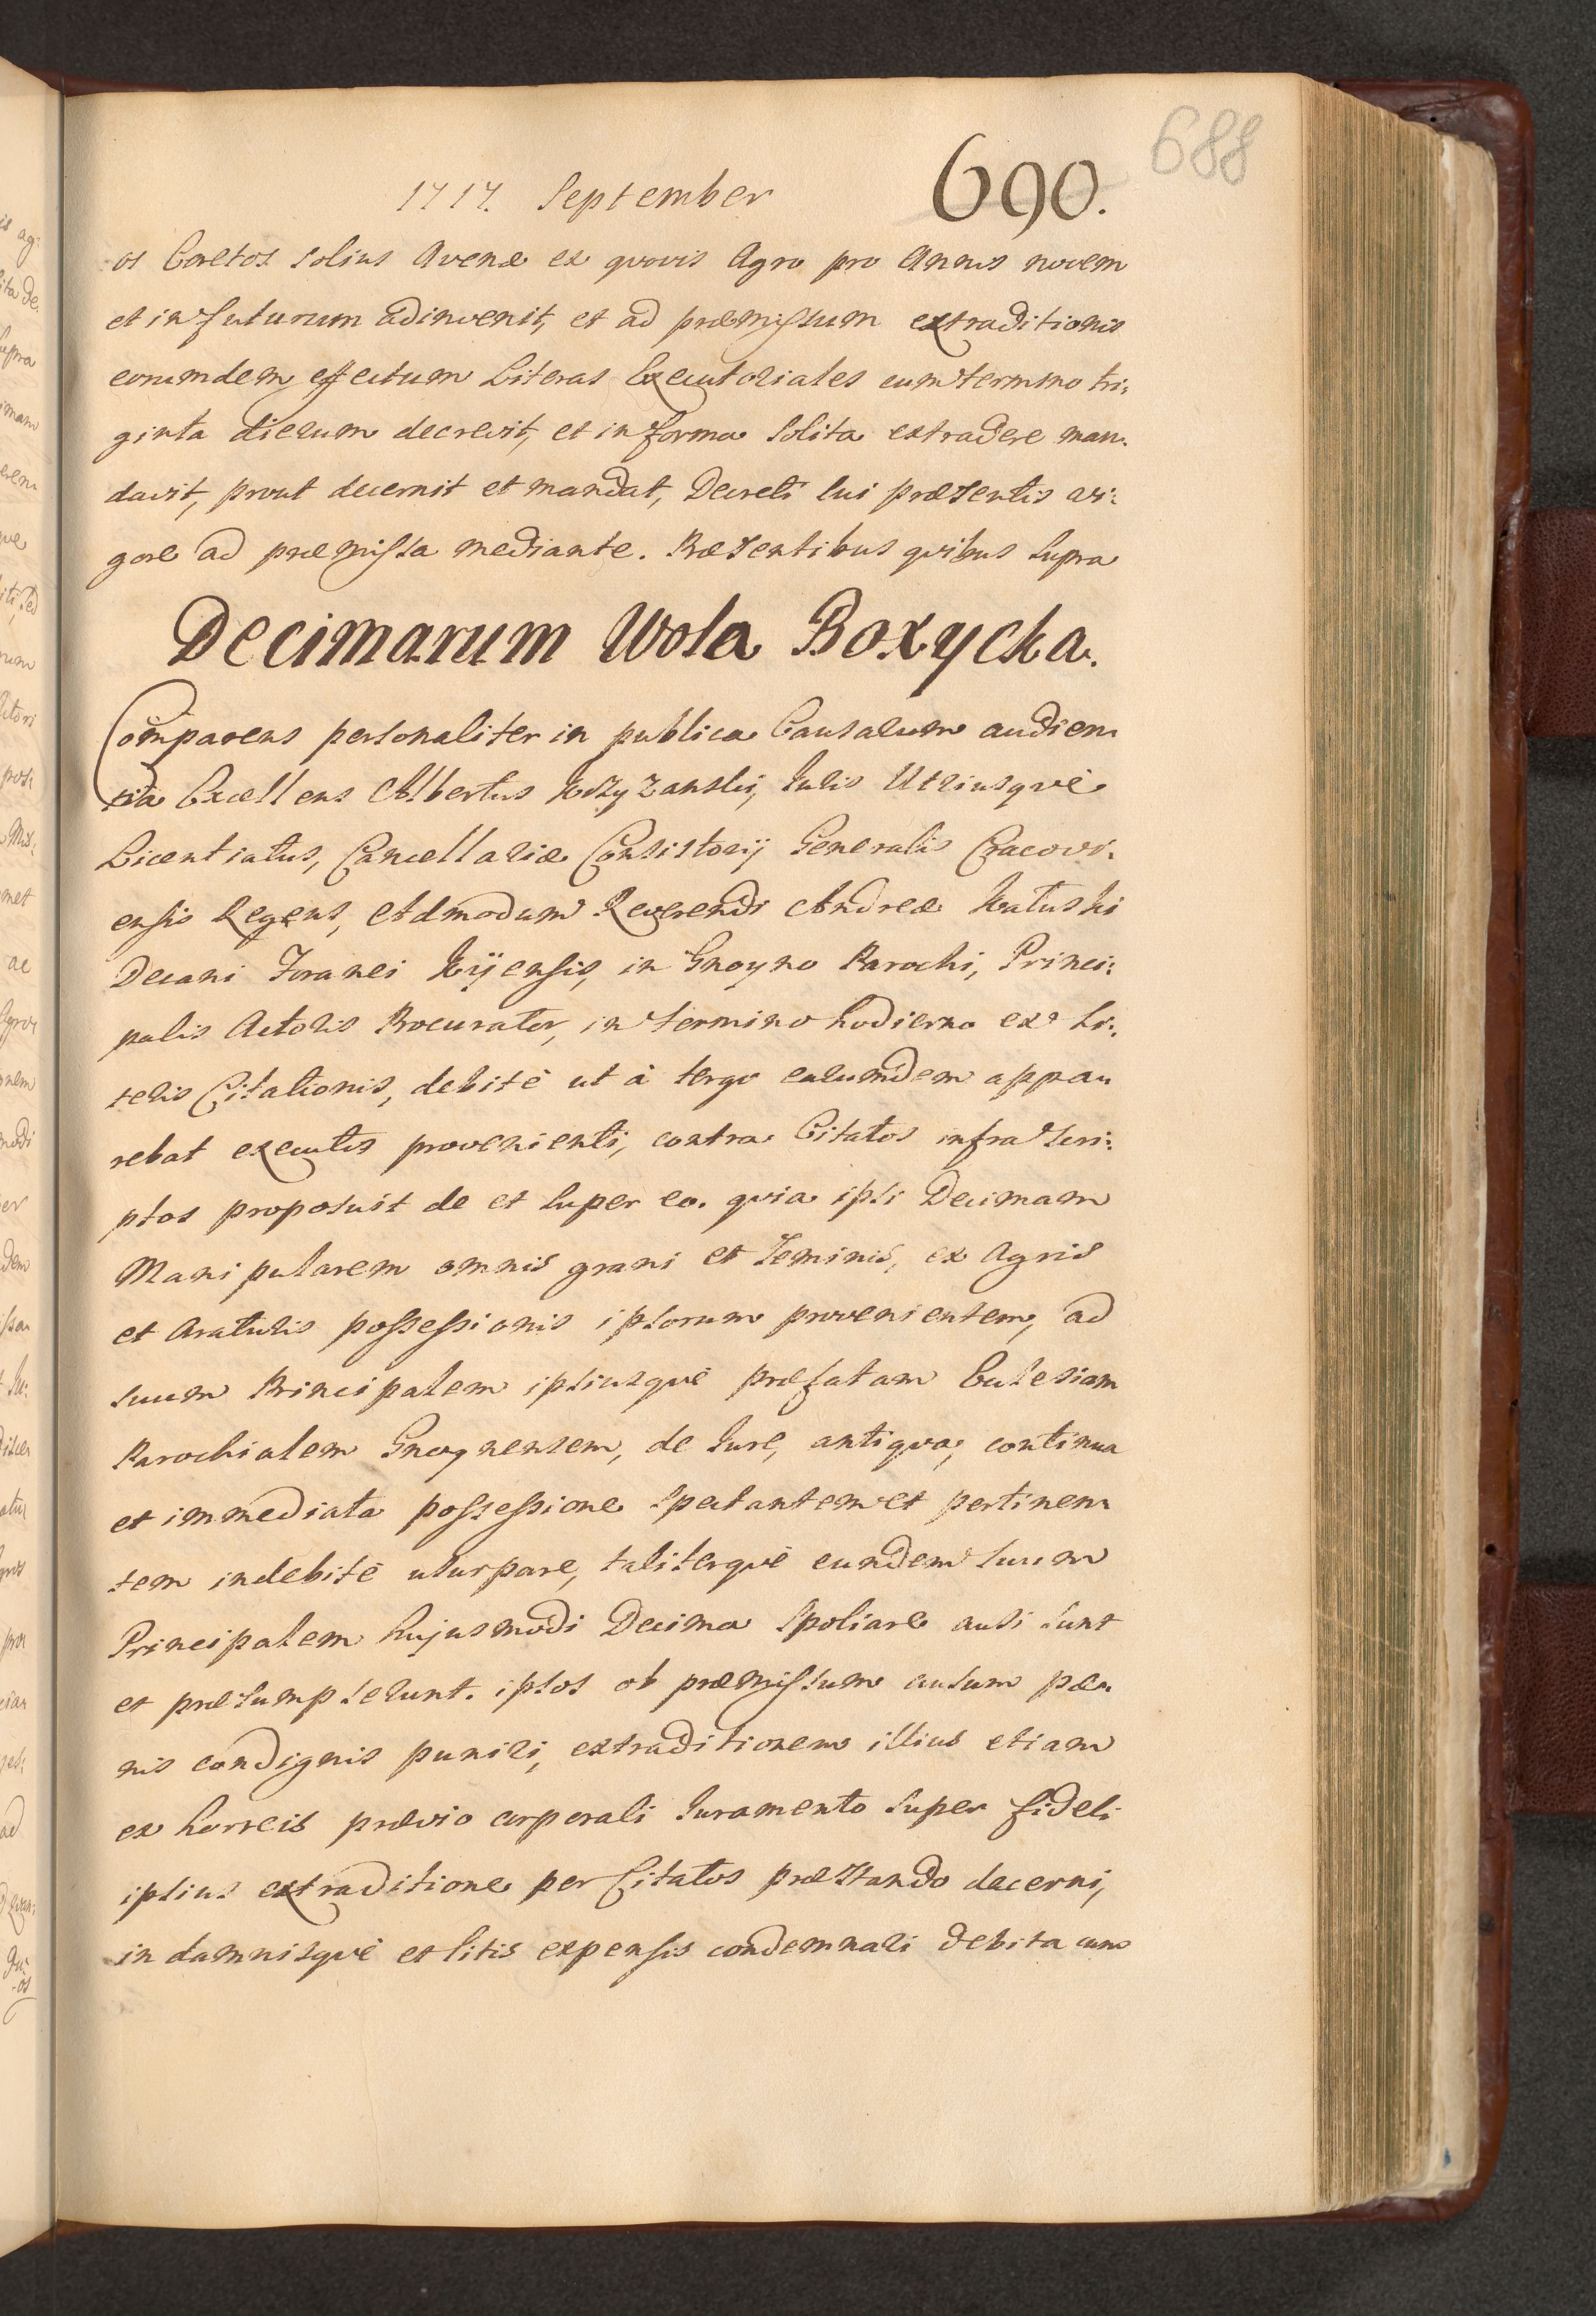 688
690.
1717. September
os Coretos solius Avenæ ex quovis Agro pro Annis novem
et in futurum adinvenit, et ad præmissum extraditionis
eorumdem effectum Literas Executoriales cum termino tri:
ginta dierum decrevit, et in forma solita extradere man:
davit, prout decernit et mandat, Decreti sui præsentis vi:
gore ad præmissa mediante. Præsentibus quibus supra
Decimarum Wola Boxycka.
Comparens personaliter in publica Causarum audien:
tia Excellens Albertus Krzyzanski, Juris Utriusque
Licentiatus, Cancellariæ Consistorij Generalis Cracovi:
ensis Regens, Admodum Reverendi Andreæ Katuski
Decani Foranei Kijensis, in Gnoyno Parochi, Princi:
palis Actoris Procurator, in termino hodierno ex Li:
teris Citationis, debitè ut à tergo earumdem appa:
rebat executis provenienti, contra Citatos infra scri:
ptos proposuit de et super eo. quia ipsi Decimam
Manipularem omnis grani et seminis, ex Agris
et Araturis possessionis ipsorum provenientem, ad
suum Principalem ipsiusquè præfatam Ecclesiam
Parochialem Gnoynensem, de Jure, antiqua, continua
et immediata possessione spectantem et pertinen:
tem indebitè usurpare, taliterquè eundem suum
Principalem hujusmodi Decima spoliare ausi sunt
et præsumpserunt. ipsos ob præmissum ausum pæ:
nis condignis puniri, extraditionem illius etiam
ex horreis prævio corporali Juramento super fideli
ipsius extraditione per Citatos præstando decerni,
in damnisquè et litis expensis condemnari debita cum